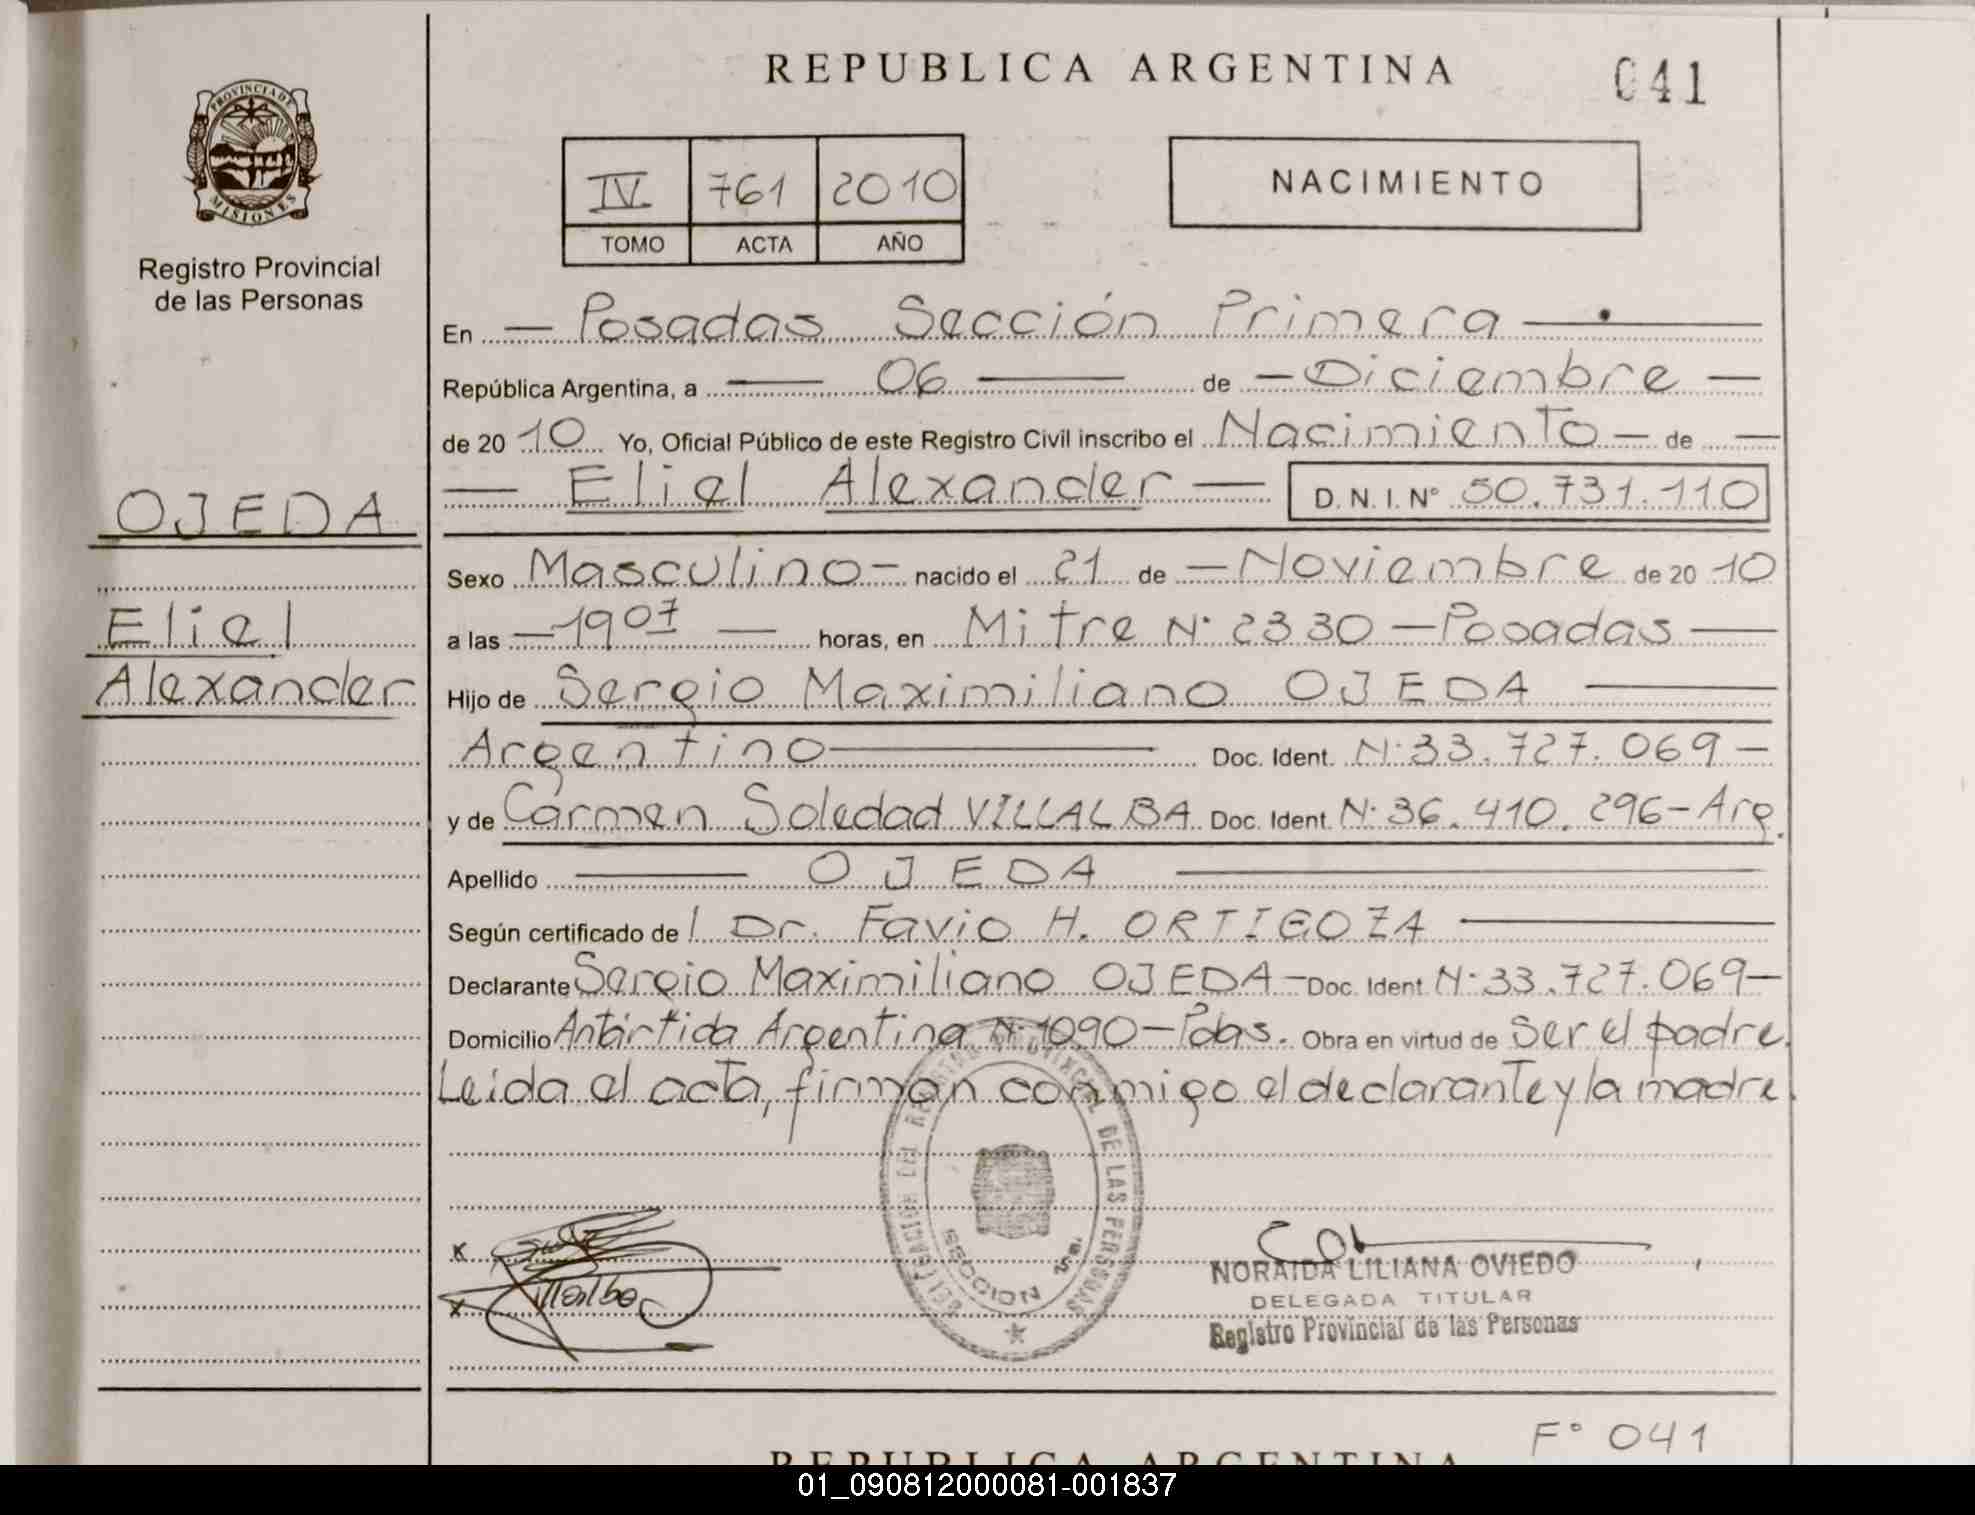 REPUBLICA ARGENTINA
041
PROVINCIA DE MISIONES
Registro Provincial
de las Personas
IV 761 2010
TOMO ACTA AÑO
NACIMIENTO
En — Posadas Sección Primera —
República Argentina, a — 06 — de — Diciembre —
de 2010 Yo, Oficial Público de este Registro Civil inscribo el Nacimiento — de —
— Eliel Alexander — D. N. I. N° 50.731.110
OJEDA
Eliel
Alexander
Sexo Masculino — nacido el 21 de — Noviembre de 2010
a las — 19 07 — horas, en Mitre N° 2330 — Posadas —
Hijo de Sergio Maximiliano OJEDA —
Argentino — Doc. Ident. N° 33.727.069 —
y de Carmen Soledad VILLALBA Doc. Ident. N° 36.410.296 — Arg.
Apellido — OJEDA —
Según certificado del Dr. Favio H. ORTIGOZA —
Declarante Sergio Maximiliano OJEDA — Doc. Ident N° 33.727.069 —
Domicilio Antártida Argentina N° 1090 — Pdas. Obra en virtud de ser el padre.
Leida el acta, firman conmigo el declarante y la madre.
DELEGACION DEL REGISTRO PROVINCIAL DE LAS PERSONAS
SECCION 1a.
x
x Villalba
NORAIDA LILIANA OVIEDO
DELEGADA TITULAR
Registro Provincial de las Personas
F° 041
REPUBLICA ARGENTINA
01_090812000081-001837